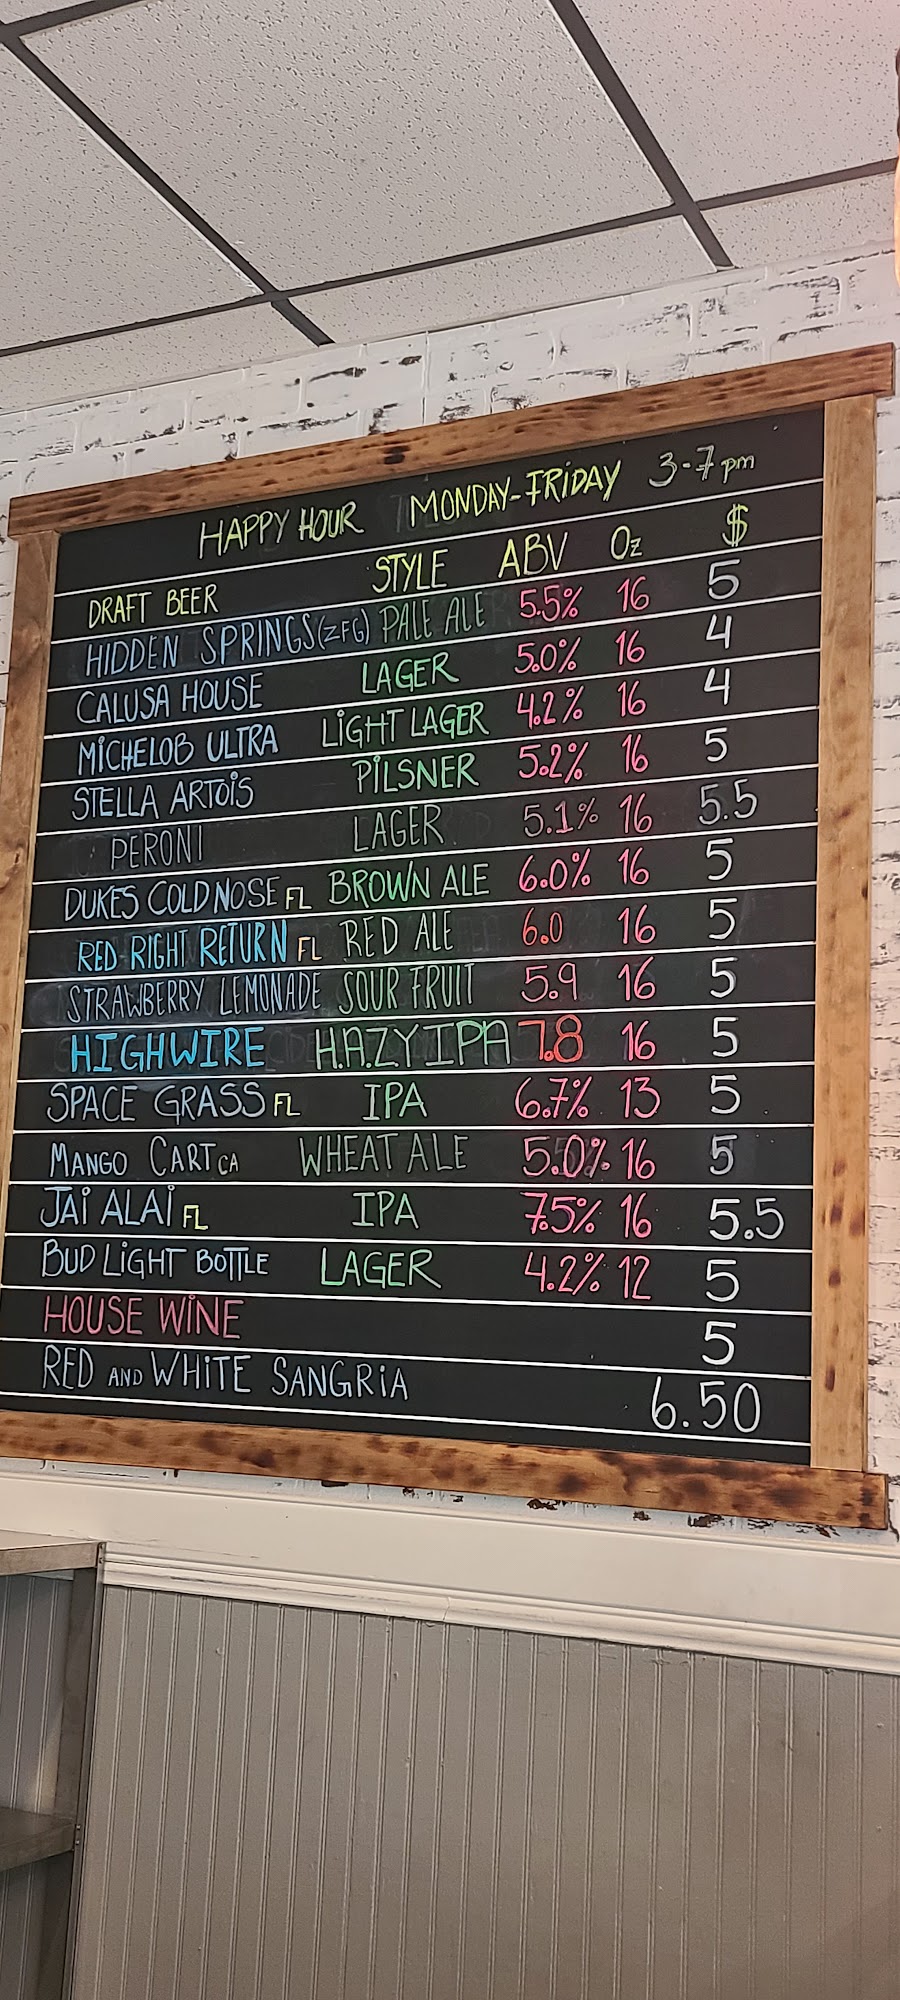 HAPPY HOUR MONDAY-FRIDAY 3-7 pm
DRAFT BEER STYLE ABV Oz $
HIDDEN SPRINGS (ZFG) PALE ALE 5.5% 16 5
CALUSA HOUSE LAGER 5.0% 16 4
MICHELOB ULTRA LIGHT LAGER 4.2% 16 4
STELLA ARTOIS PILSNER 5.2% 16 5
PERONI LAGER 5.1% 16 5.5
DUKES COLD NOSE FL BROWN ALE 6.0% 16 5
RED RIGHT RETURN FL RED ALE 6.0 16 5
STRAWBERRY LEMONADE SOUR FRUIT 5.9 16 5
HIGHWIRE H.A.Z.Y IPA 7.8 16 5
SPACE GRASS FL IPA 6.7% 13 5
MANGO CART CA WHEAT ALE 5.0% 16 5
JAI ALAI FL IPA 7.5% 16 5.5
BUD LIGHT BOTTLE LAGER 4.2% 12 5
HOUSE WINE 5
RED AND WHITE SANGRIA 6.50